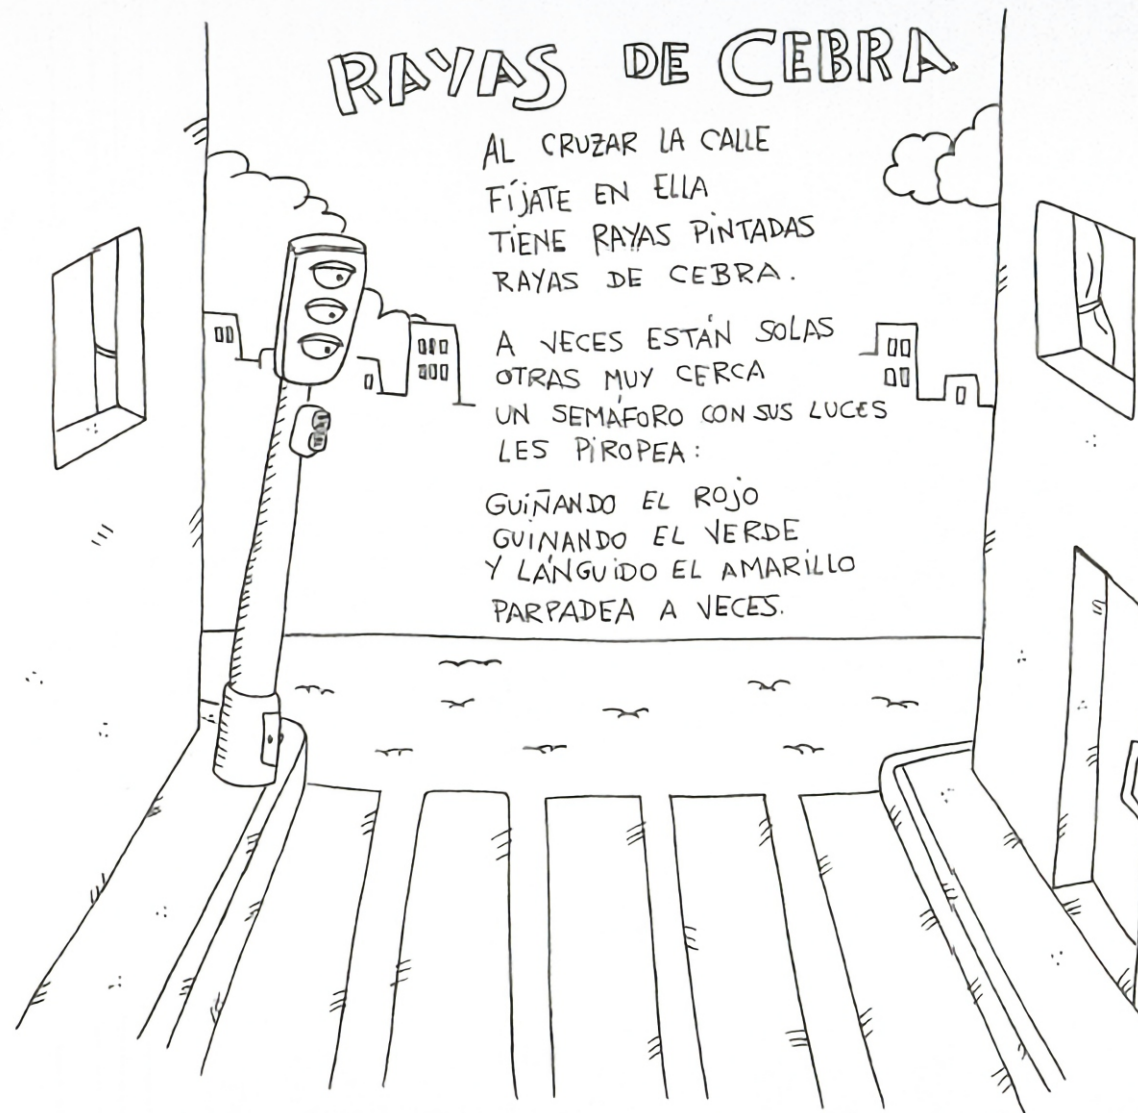 RAYAS DE CEBRA
AL CRUZAR LA CALLE
FÍJATE EN ELLA
TIENE RAYAS PINTADAS
RAYAS DE CEBRA.
A VECES ESTÁN SOLAS
OTRAS MUY CERCA
UN SEMÁFORO CON SUS LUCES
LES PIROPEA:
GUIÑANDO EL ROJO
GUIÑANDO EL VERDE
Y LÁNGUIDO EL AMARILLO
PARPADEA A VECES.